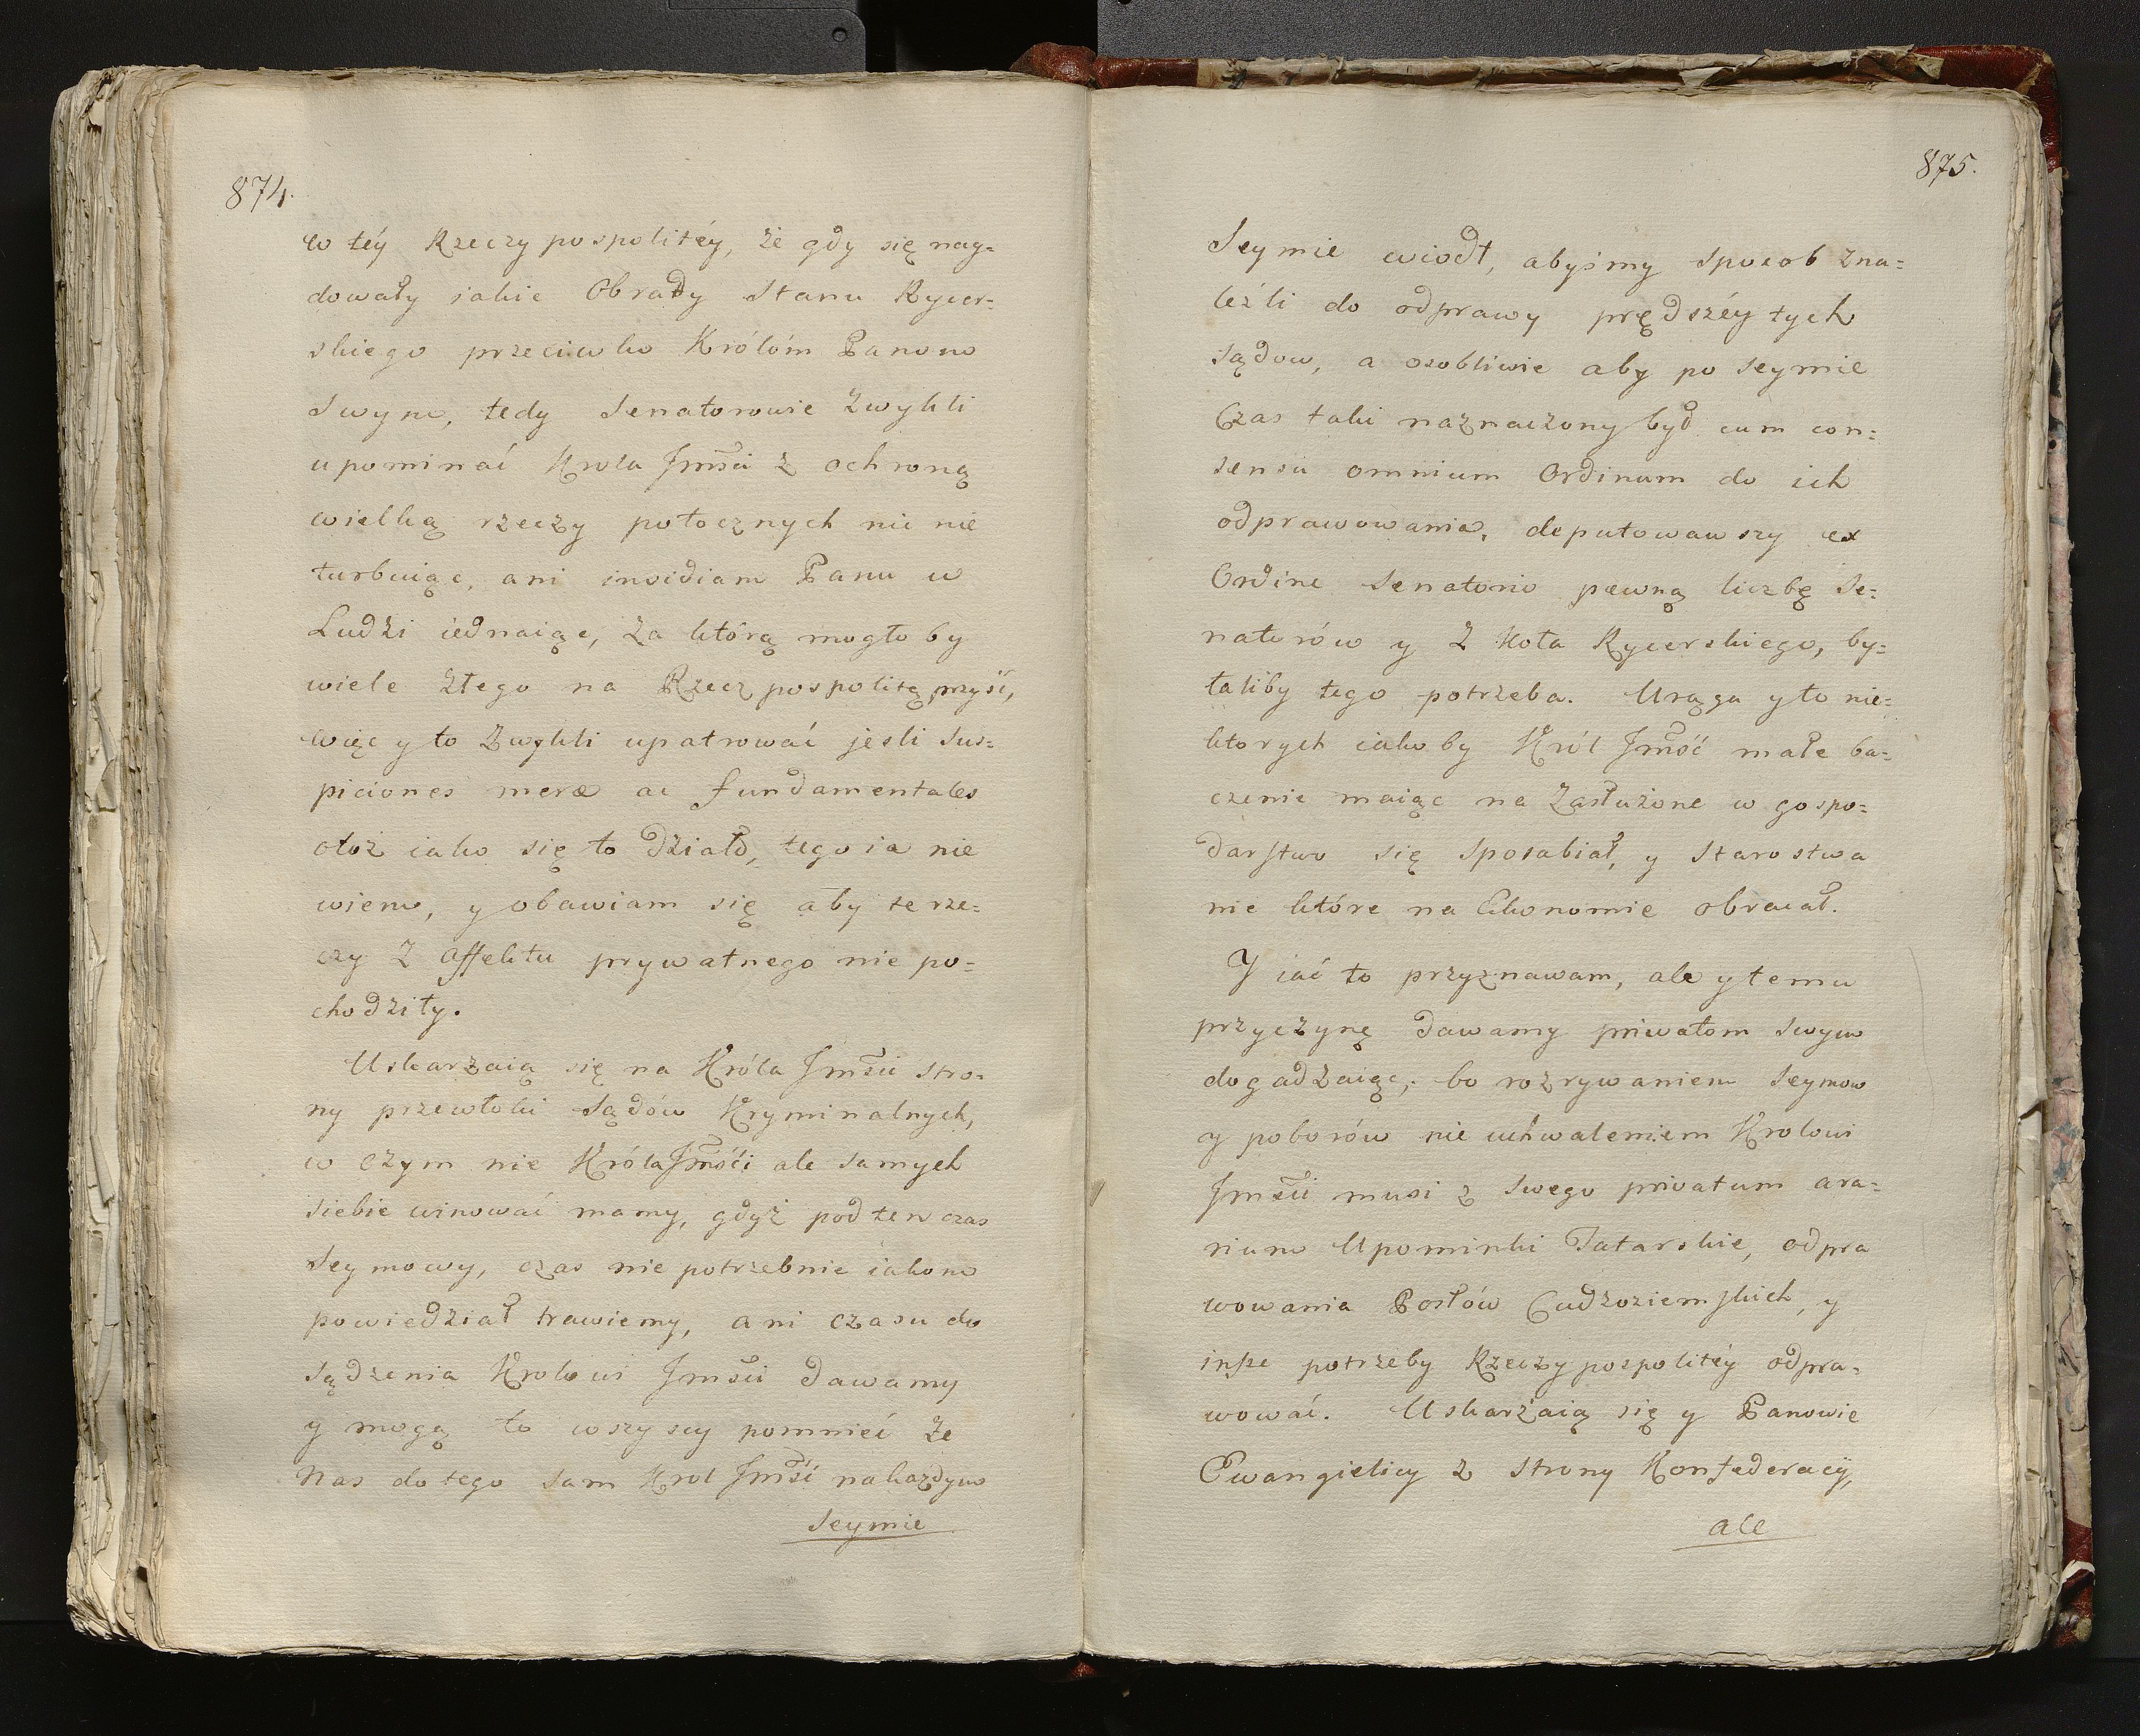 874.
w téy Rzeczypospolitéy, że gdy się nay=
dowały jakie Obrady Stanu Rycer=
skiego przeciwko Królóm Panom
Swym, tedy Senatorowie Zwykli
upominać Krola Jmści z ochroną
wielką rzeczy potocznych nic nie
turbuiąc, ani invidiam Panu w
Ludzi iednaiąc, za którą mogło by
wiele złego na Rzeczpospolitą przyść,
więc y to Zwykli upatrować jeśli Sus=
piciones meræ ac fundamentales
otoż iako się to działo, tego ia nie
wiem, y obawiam się aby te rze=
czy z Affektu prywatnego nie po=
chodziły.
Uskarzaią się na Króla Jmści stro=
ny przewłoki Sądów Kryminalnych,
w czym nie Króla Jmości ale samych
siebie winować mamy, gdyż pod ten czas
Seymowy, czas nie potrzebnie iakom
powiedział trawiemy, ani czasu do
sądzenia Krolowi Jmści dawamy
y mogą to wszyscy pomnieć że
Nas do tego sam Krol Jmść na każdym
Seymie
875.
Seymie wiodł, abyśmy sposob zna=
leźli do odprawy prędszéy tych
sądow, a osobliwie aby po Seymie
Czas taki naznaczony był cum con=
sensu omnium Ordinum do ich
odprawowania, deputowawszy ex
Ordine Senatorio pewną liczbę Se=
natorów y z Koła Rycerskiego, by=
łaliby tego potrzeba. Urąga y to nie=
ktorych iakoby Król Jmość małe ba=
czenie maiąc na Zasłużone w gospo=
darstwo się sposabiał, y Starostwa
nie które na Ekonomie obracał.
Y iać to przyznawam, ale y temu
przyczynę dawamy privatom Swym
dogadzaiąc, bo rozrywaniem Seymow
y poborów nie uchwaleniem Krolowi
Jmści musi z swego privatum æra=
rium Upominki Tatarskie, odpra
wowania Posłów Cudzoziemskich, y
insze potrzeby Rzeczypospolitéy odpra=
wować. Uskarżaią się y Panowie
Ewangielicy z Strony Konfederacÿ,
ale